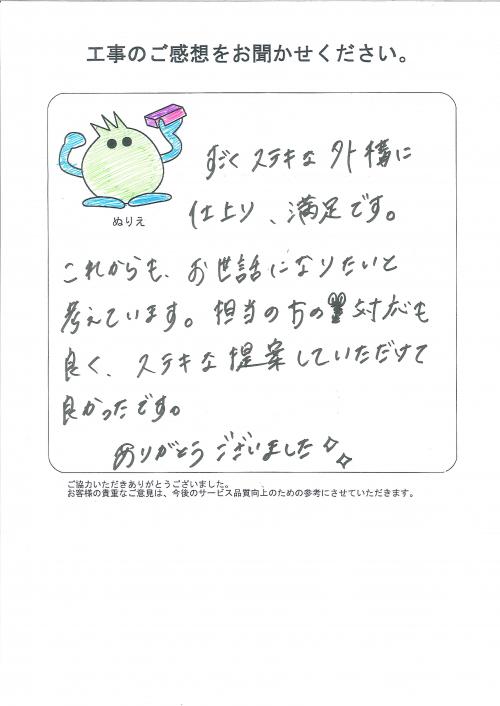 工事のご感想をお聞かせください。
すごくステキな外構に
仕上り、満足です。
ぬりえ
これからも、お世話になりたいと
考えています。担当の方の対応も
良く、ステキな提案していただけて
良かったです。
ありがとうございました
ご協力いただきありがとうございました。
お客様の貴重なご意見は、今後のサービス品質向上のための参考にさせていただきます。